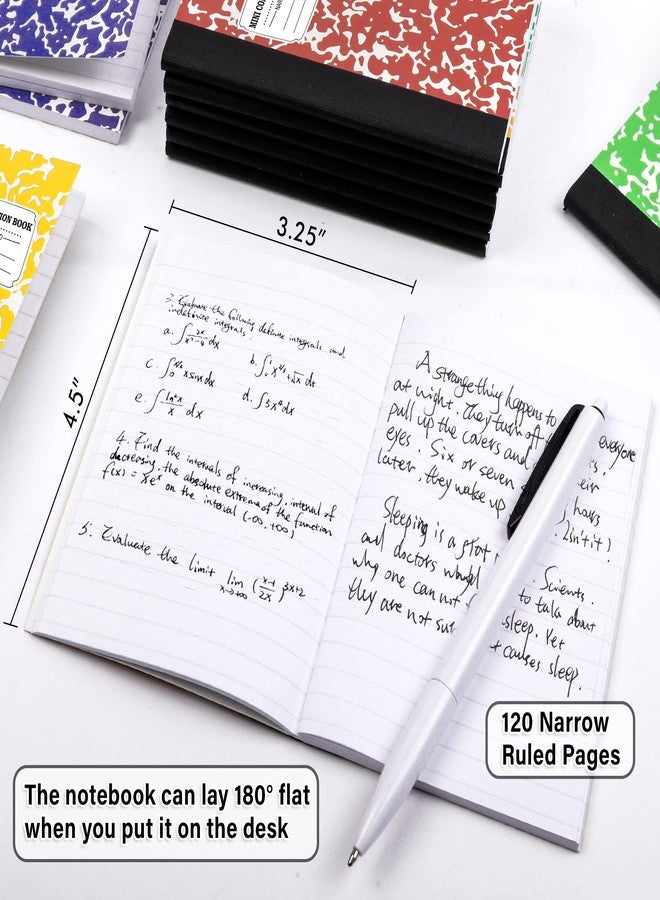 MINI CO
ION BOOK
3.25"
4.5"
3. Evaluate the following definite integrals and
indefinite integrals.
a. ∫ 2x/(x²-4) dx
b. ∫₀¹ x⁴ᐟ³+√x dx
c. ∫ x sinx dx
d. ∫5x⁴dx
e. ∫ ln²x/x dx
4. Find the intervals of increasing, interval of
decreasing, the absolute extreme of the function
f(x) = xeˣ on the interval (-∞, +∞)
5. Evaluate the limit lim x→+∞ (x-1/2x)^3x+2
A strange thing happens to everyone
at night. They turn off
pull up the covers and
eyes. Six or seven hours
later, they wake up Isn't it!
Sleeping is a great Scients.
and doctors to talk about
why one can not sleep. Yet
they are not causes sleep.
120 Narrow
Ruled Pages
The notebook can lay 180° flat
when you put it on the desk